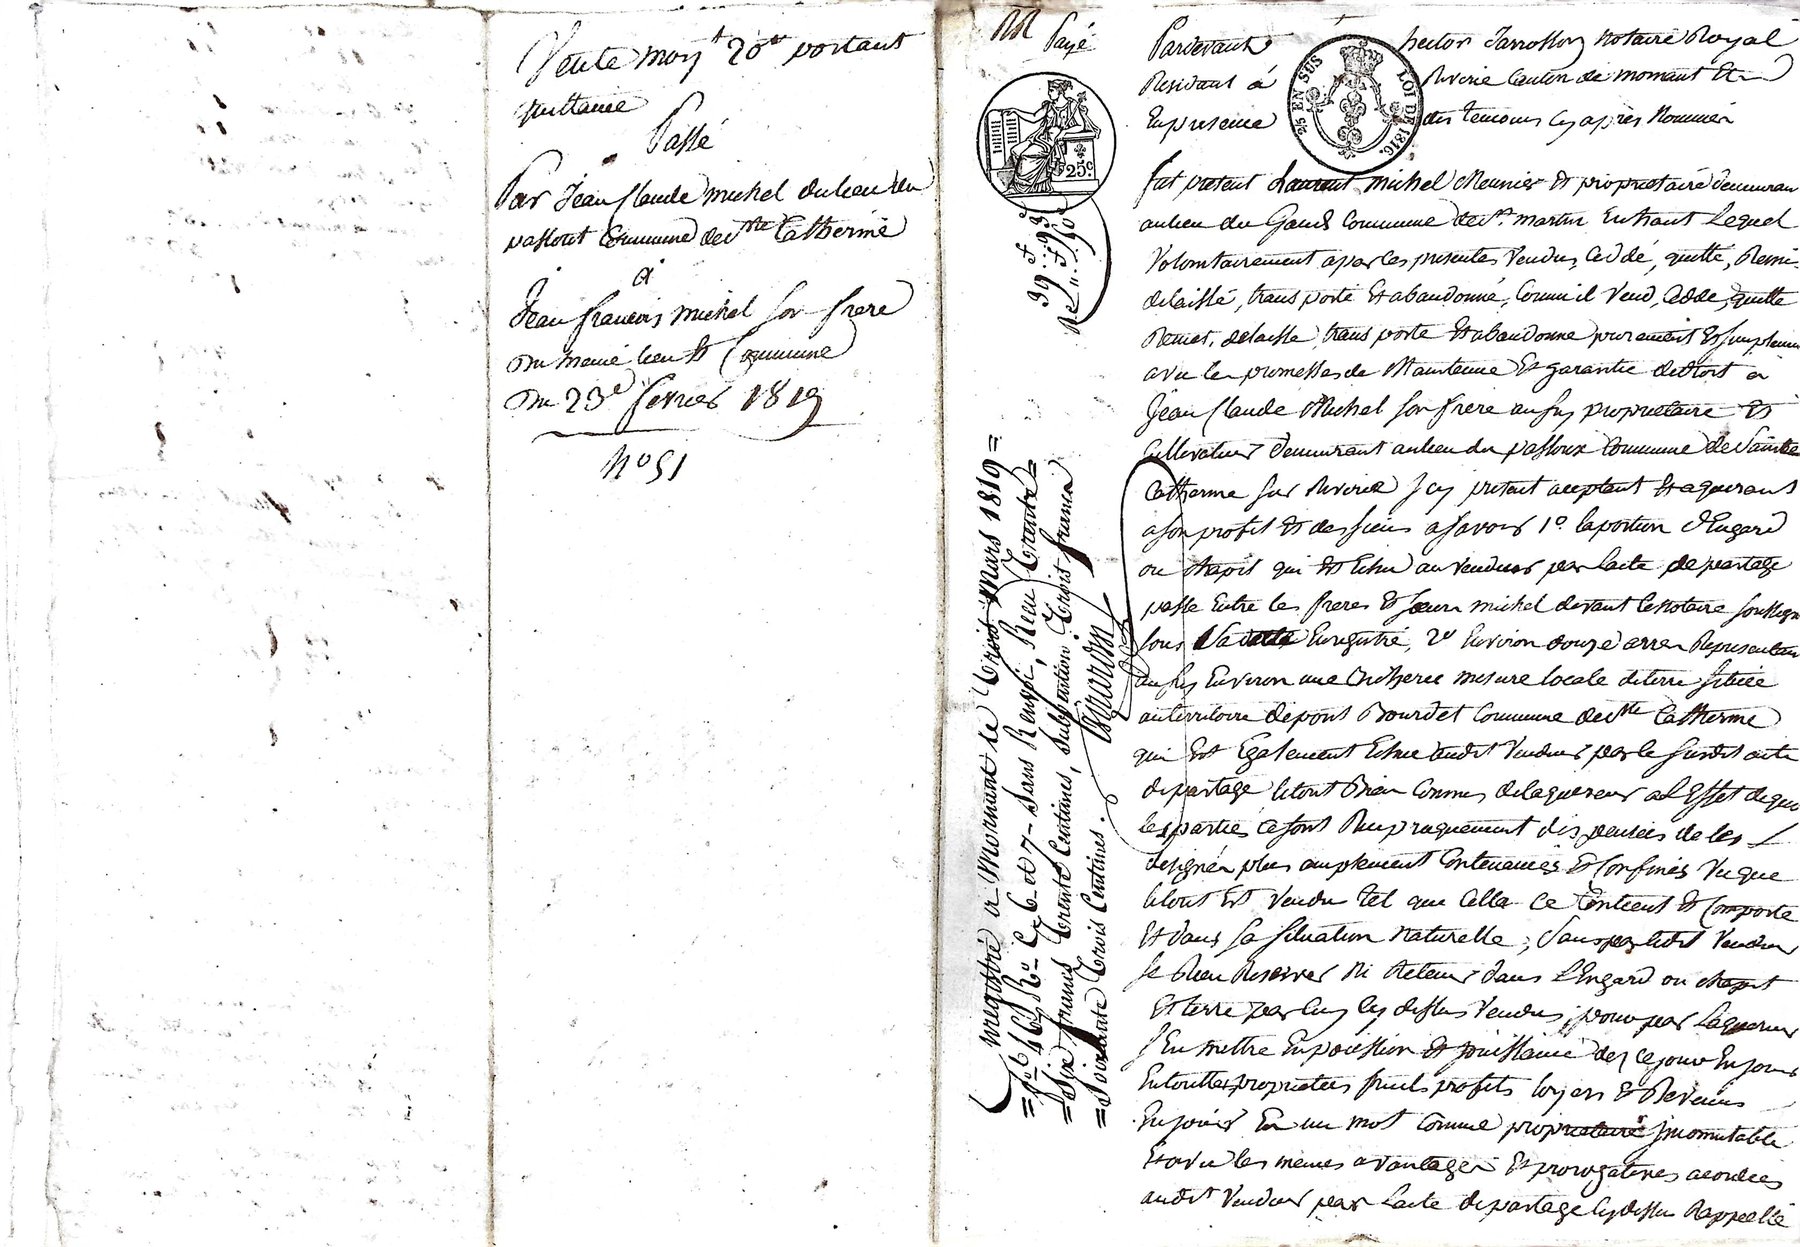 Vente moy.t 20 portant
quittance
Passé
Par Jean Claude michel du lieu du
passout Commune de Ste Catherine
à
Jean françois michel son frere
Du meme lieu et Commune
Du 23e fevrier 1819
No 51
RR Payé
Pardevant hector Jarrosson notaire Royal
Residant à Riverie Canton de mornant Et
En presence des temoins cy après Nommés
25 EN SUS
LOI DE 1816.
25c
39 f 93
fut présent Laurent Michel Meunier et propriétaire demeurant
au lieu du Gand Commune de St. martin En haut Lequel
Volontairement a par ces présentes Vendu, Ceddé, quitté, Remi
delaissé, transporté Et abandonné, Comme il Vend, Cedde, quitte
Remet, delaisse, transporte Et abandonne purement Et simplement
avec les promesses de Maintenue Et garantie de droit à
Jean Claude Michel son frere aussy propriétaire Et
Cultivateur demeurant au lieu du passoux Commune de Sainte
Catherine sur Riverie Icy présent acceptant Et aquerant
a son profit Et des siens a savoir 1o. la portion d'Engard
ou chapit qui Est Echu au Vendeur par l'acte de partage
passé Entre les freres Et soeurs michel devant le notaire soussigné
sous sa datte Enregistré, 2o Environ douze ares Representant
aussy Environ une Bicherée mesure locale de terre située
au territoire de pont Bourdet Commune de Ste Catherine
qui Est Egalement Echue audit Vendeur par le susdit acte
de partage le tout Bien Connu de laquereur a l'Effet de quoi
les parties ce sont Reciproquement dispensées de les
designer plus amplement Contenances Et Confinés Vu que
le tout Est Vendu tel que Cella ce Contient Et Comporte
Et dans sa situation Naturelle, Sans par ledit Vendeur
se Rien Reserver Ni Retenir dans l'Engard ou chapit
Et terre par luy cy dessus Vendus, pour par Laquereur
s'En mettre En possession Et jouissance des ce jour En jouir
En toutte proprietées fruits profits loyers Et Revenus
En jouir En un mot Comme proprietaire Incommutable
Et avec les memes avantages Et prorogatives acordées
audit Vendeur par l'acte de partage cy dessus Rappellé
Enregistré à Mornant le Trois Mars 1819
fo. 46 Ro. C. 6 et 7. Sans Renvoi, Reçu Trente
Six francs Trente Centimes, Subvention Trois francs
Soixante Trois Centimes.